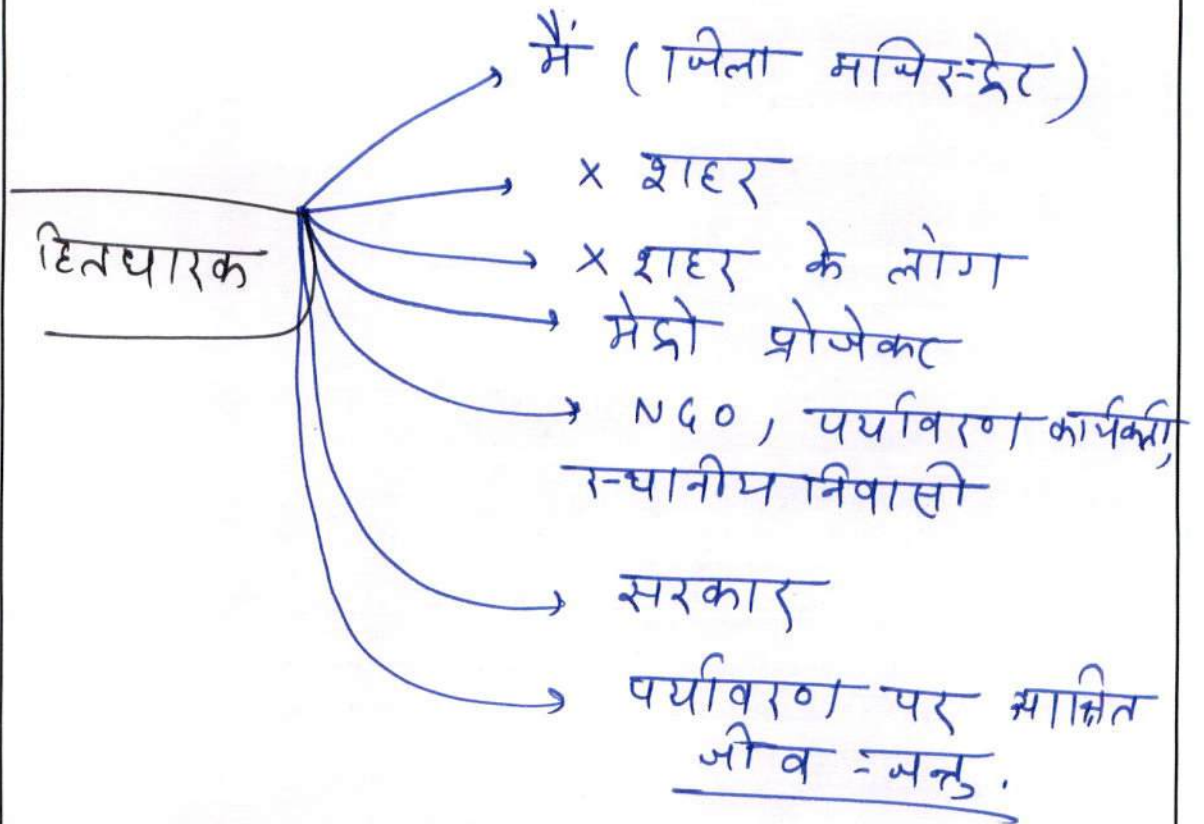 मैं (जिला मजिस्ट्रेट)
x शहर
हितधारक
x शहर के लोग
मेट्रो प्रोजेक्ट
NGO, पर्यावरण कार्यकर्ता,
स्थानीय निवासी
सरकार
पर्यावरण पर आश्रित
जीव-जन्तु.